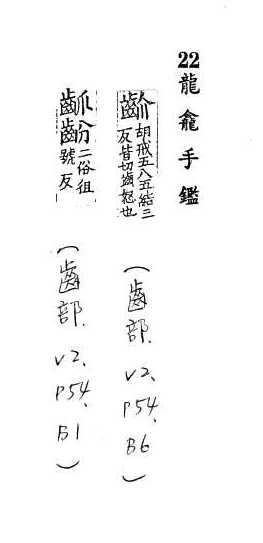 22 龍龕手鑑
齘 胡戒五八五結三反皆切齒怒也
(齒部、V2、P54、B6)
二俗徂號反
(齒部、V2、P54、B1)